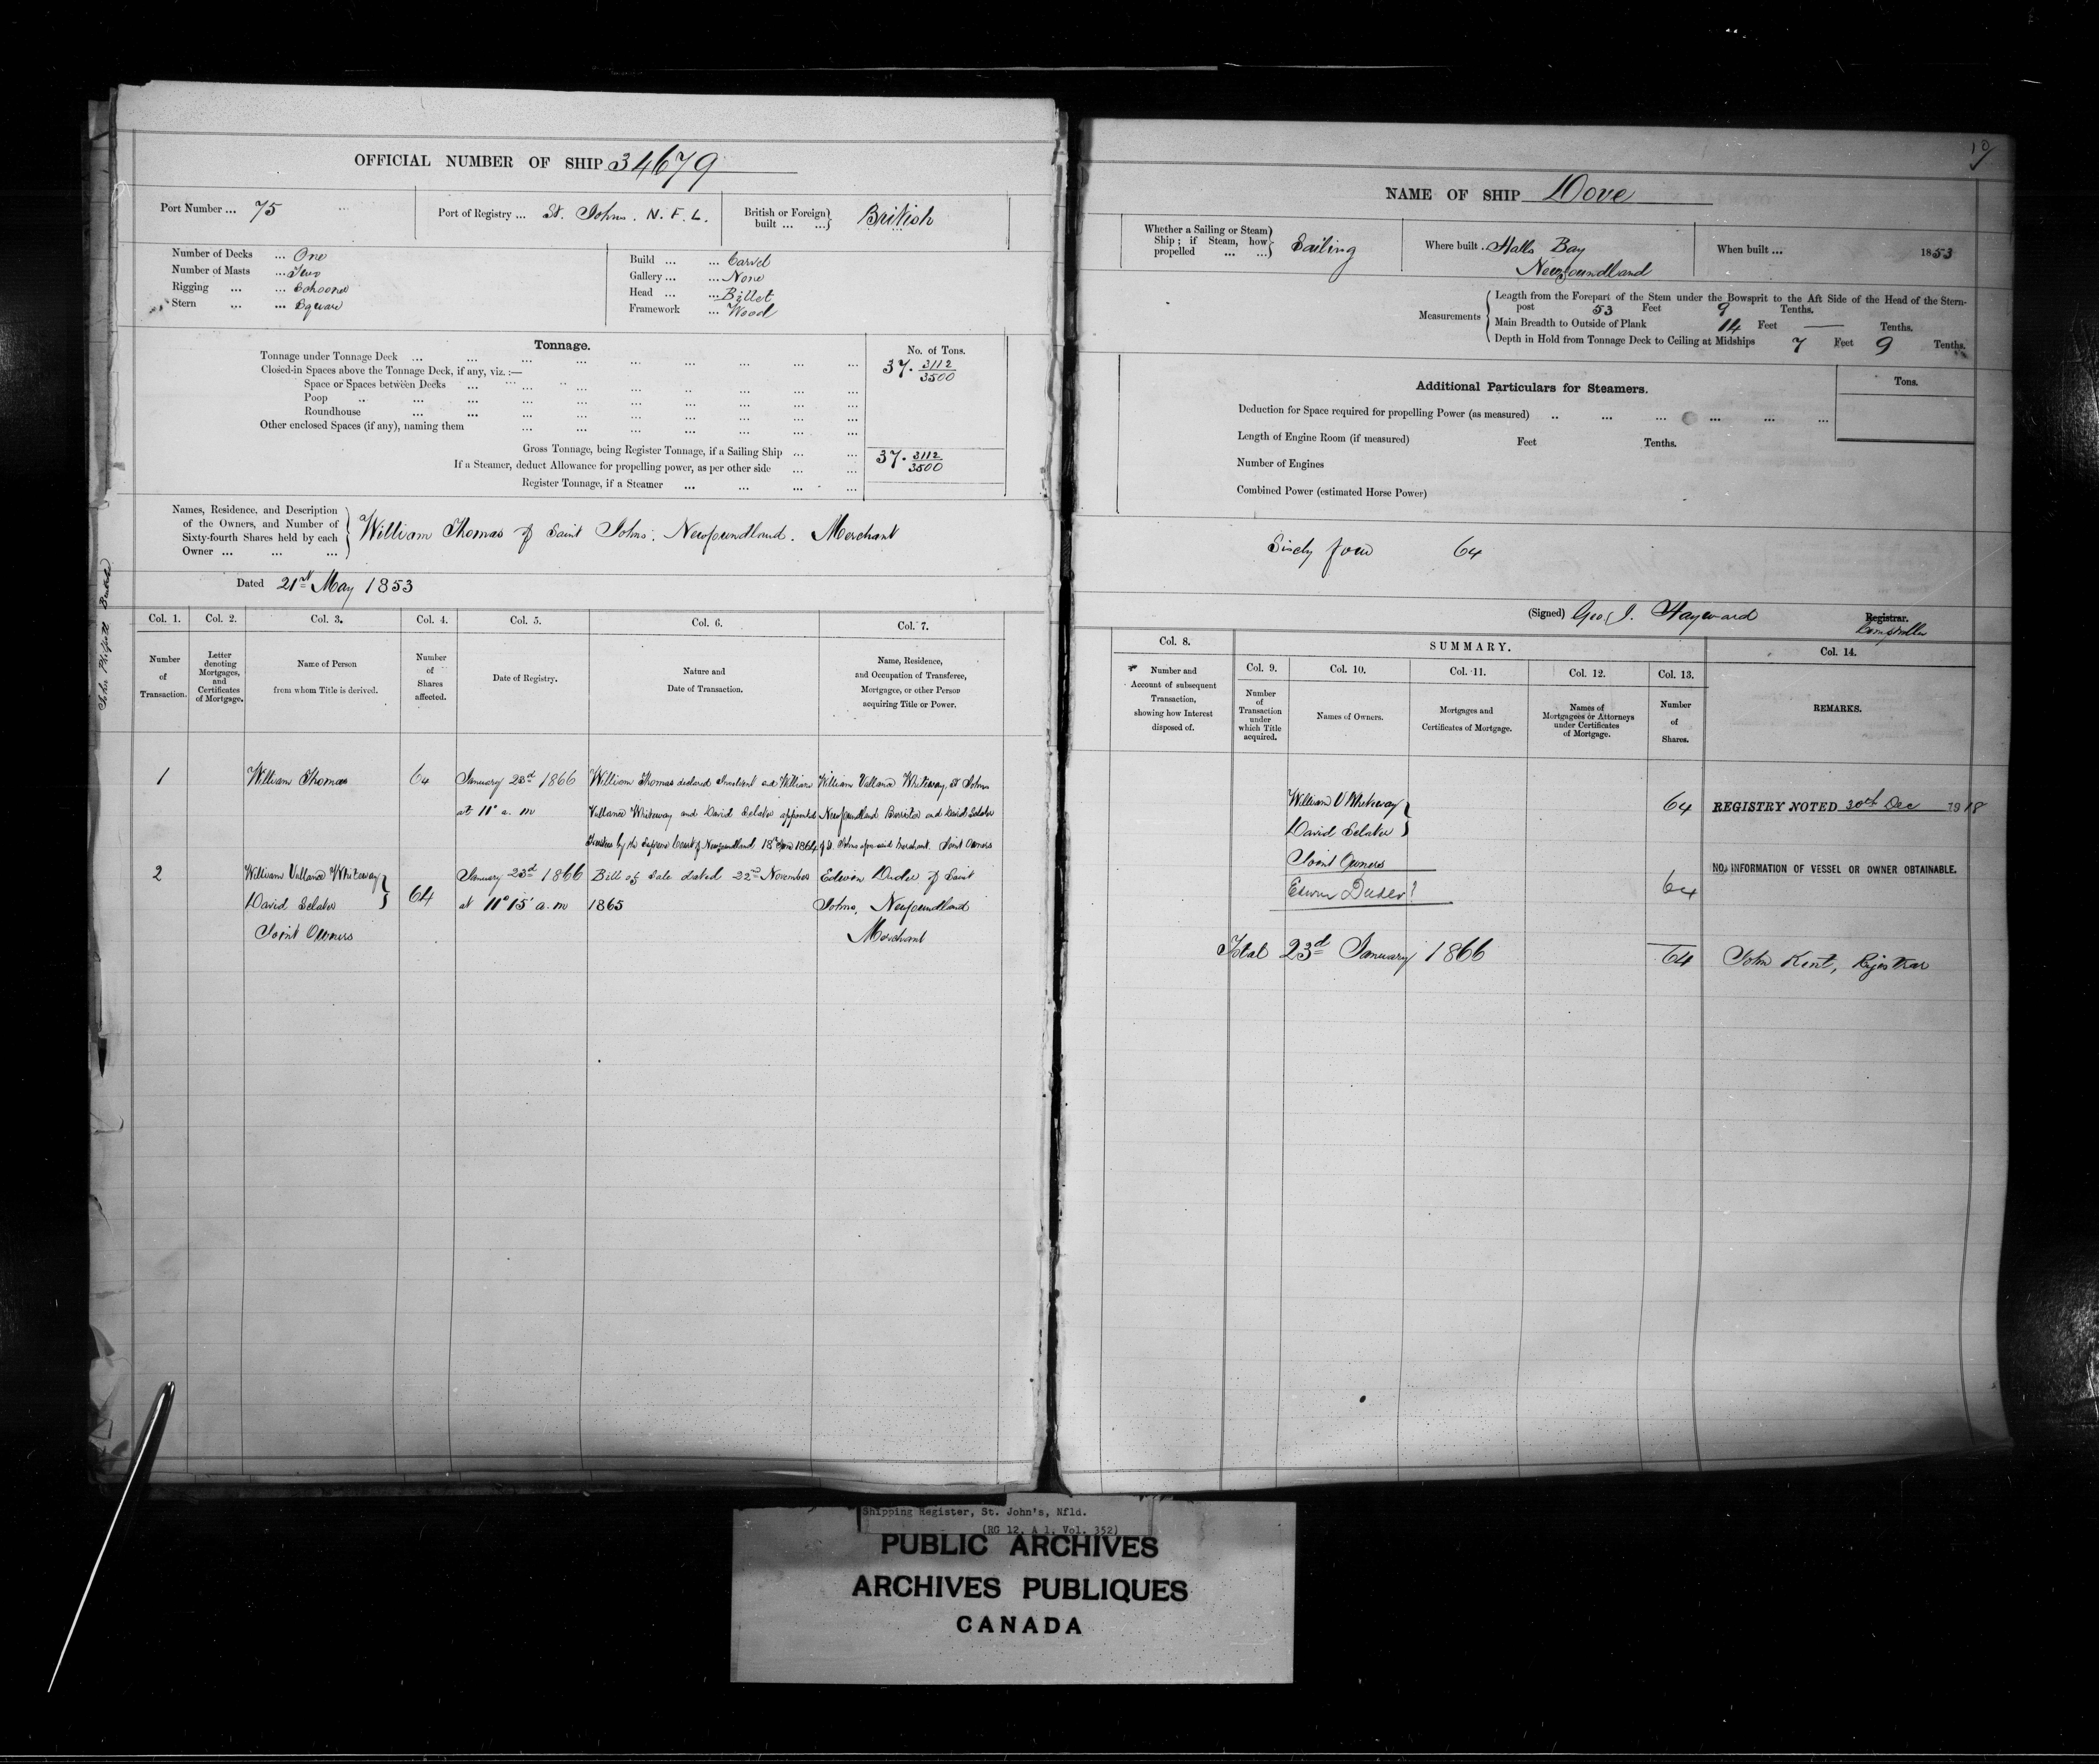 OFFICIAL NUMBER OF SHIP 34679
Port Number ... 75
Port of Registry ... St. Johns. N. F. L.
British or Foreign built ... ... British
Number of Decks ... One
Number of Masts ... Two
Rigging ... ... Schooner
Stern ... ... Square
Build ... ... Carvel
Gallery ... ... None
Head ... ... Billet
Framework ... Wood
Tonnage.
No. of Tons.
Tonnage under Tonnage Deck ... 37. 3112/3500
Closed-in Spaces above the Tonnage Deck, if any, viz.:—
Space or Spaces between Decks ...
Poop ...
Roundhouse ...
Other enclosed Spaces (if any), naming them ...
Gross Tonnage, being Register Tonnage, if a Sailing Ship ... 37. 3112/3500
If a Steamer, deduct Allowance for propelling power, as per other side ...
Register Tonnage, if a Steamer ...
Names, Residence, and Description
of the Owners, and Number of
Sixty-fourth Shares held by each
Owner ... ... ...
William Thomas of Saint Johns. Newfoundland. Merchant
Dated 21st May 1853
John Philpott
Col. 1. Col. 2. Col. 3. Col. 4. Col. 5. Col. 6. Col. 7.
Number of Transaction.
Letter denoting Mortgages, and Certificates of Mortgage.
Name of Person from whom Title is derived.
Number of Shares affected.
Date of Registry.
Nature and Date of Transaction.
Name, Residence, and Occupation of Transferee, Mortgagee, or other Person acquiring Title or Power.
1
William Thomas
64
January 23d 1866
at 11° a. m
William Thomas declared Insolvent and William
Vallance Whiteway and David Sclater appointed
Trustees by the Supreme Court of Newfoundland 18th 1864
William Vallance Whiteway, St Johns
Newfoundland Barrister and David Sclater
of St. Johns aforesaid Merchant. Joint Owners
2
William Vallance Whiteway
David Sclater
Joint Owners
64
January 23d 1866
at 11° 15' a. m
Bill of Sale dated 22nd November
1865
Edwin Duder of Saint
Johns, Newfoundland
Merchant
10
NAME OF SHIP Dove
Whether a Sailing or Steam
Ship; if Steam, how
propelled ... ...
Sailing
Where built . Halls Bay
Newfoundland
When built ... 1853
Measurements
Length from the Forepart of the Stem under the Bowsprit to the Aft Side of the Head of the Stern-
post 53 Feet 9 Tenths.
Main Breadth to Outside of Plank 14 Feet — Tenths.
Depth in Hold from Tonnage Deck to Ceiling at Midships 7 Feet 9 Tenths.
Additional Particulars for Steamers.
Tons.
Deduction for Space required for propelling Power (as measured) ...
Length of Engine Room (if measured) Feet Tenths.
Number of Engines
Combined Power (estimated Horse Power)
Sixty four 64
(Signed) Geo J. Hayward Registrar.
Comptroller
Col. 8.
SUMMARY.
Col. 9. Col. 10. Col. 11. Col. 12. Col. 13. Col. 14.
Number and Account of subsequent Transaction, showing how Interest disposed of.
Number of Transaction under which Title acquired.
Names of Owners.
Mortgages and Certificates of Mortgage.
Names of Mortgagees or Attorneys under Certificates of Mortgage.
Number of Shares.
REMARKS.
William V Whiteway
David Sclater
Joint Owners
64
REGISTRY NOTED 30th Dec 1918
Edwin Duder
64
NO INFORMATION OF VESSEL OR OWNER OBTAINABLE.
Total 23d January 1866 64
John Kent, Registrar
Shipping Register, St. John's, Nfld.
(RG 12, A 1, Vol. 352)
PUBLIC ARCHIVES
ARCHIVES PUBLIQUES
CANADA